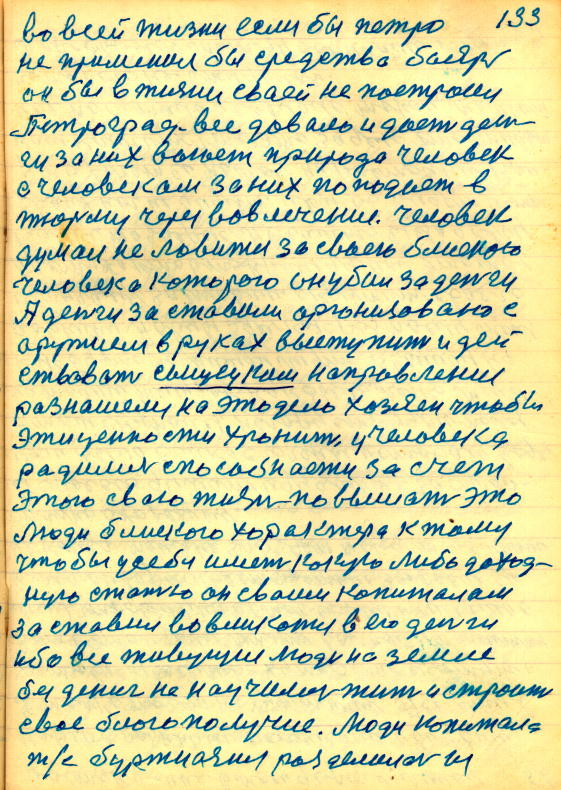 133
во всей жизни если бы петро
не применил бы средства бояр
он бы в жизни своей не построил
Петроград. все довало и дает ден
ги за них воюет природа человек
с человекам за них поподает в
тюрму через вовлечение. Человек
думал не ловити за своего блиского
человека которого он убил за денги
А денги заставили органзовано с
оружием в руках выступит и дей
ствоват сыщуцкам направлении
разнашему на это дело хозяен чтобы
эти ценности хронит. у человека
радилис способности за счет
этого сваго жизн повышат это
люди блиского характера к тому
чтобы у себя имет какую либо доход-
ную статю он своим копиталам
заставил во в его денги
ибо все живущие люди на земле
без денег не научилис жит и строит
свое благополучие. Люди копитала
т/е буржуазия разделилас и